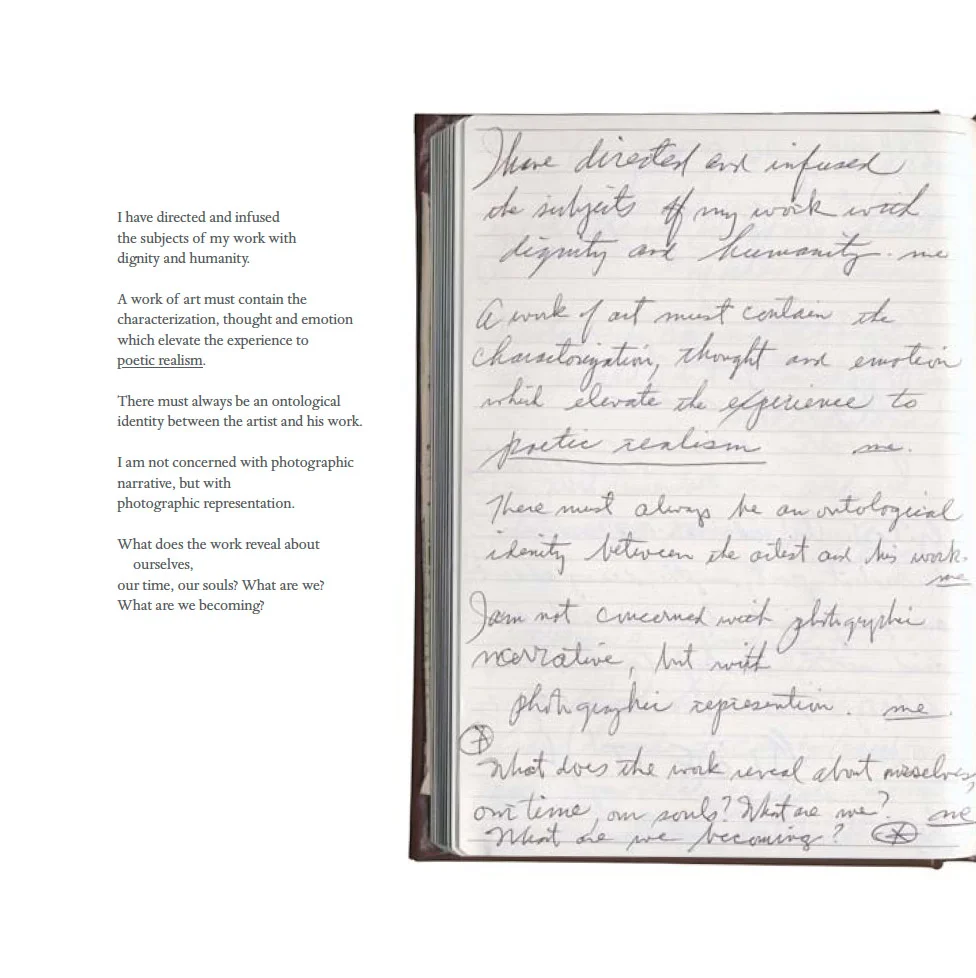 I have directed and infused
the subjects of my work with
dignity and humanity.
A work of art must contain the
characterization, thought and emotion
which elevate the experience to
poetic realism.
There must always be an ontological
identity between the artist and his work.
I am not concerned with photographic
narrative, but with
photographic representation.
What does the work reveal about
ourselves,
our time, our souls? What are we?
What are we becoming?
I have directed and infused
the subjects of my work with
dignity and humanity. me
A work of art must contain the
charactorization, thought and emotion
which elevate the experience to
poetic realism me.
There must always be an ontological
idenity between the artist and his work.
me
I am not concerned with photigraphic
narrative, but with
photographic represention. me.
What does the work reveal about ourselves,
our time, our souls? What are we? me
What are we becoming?